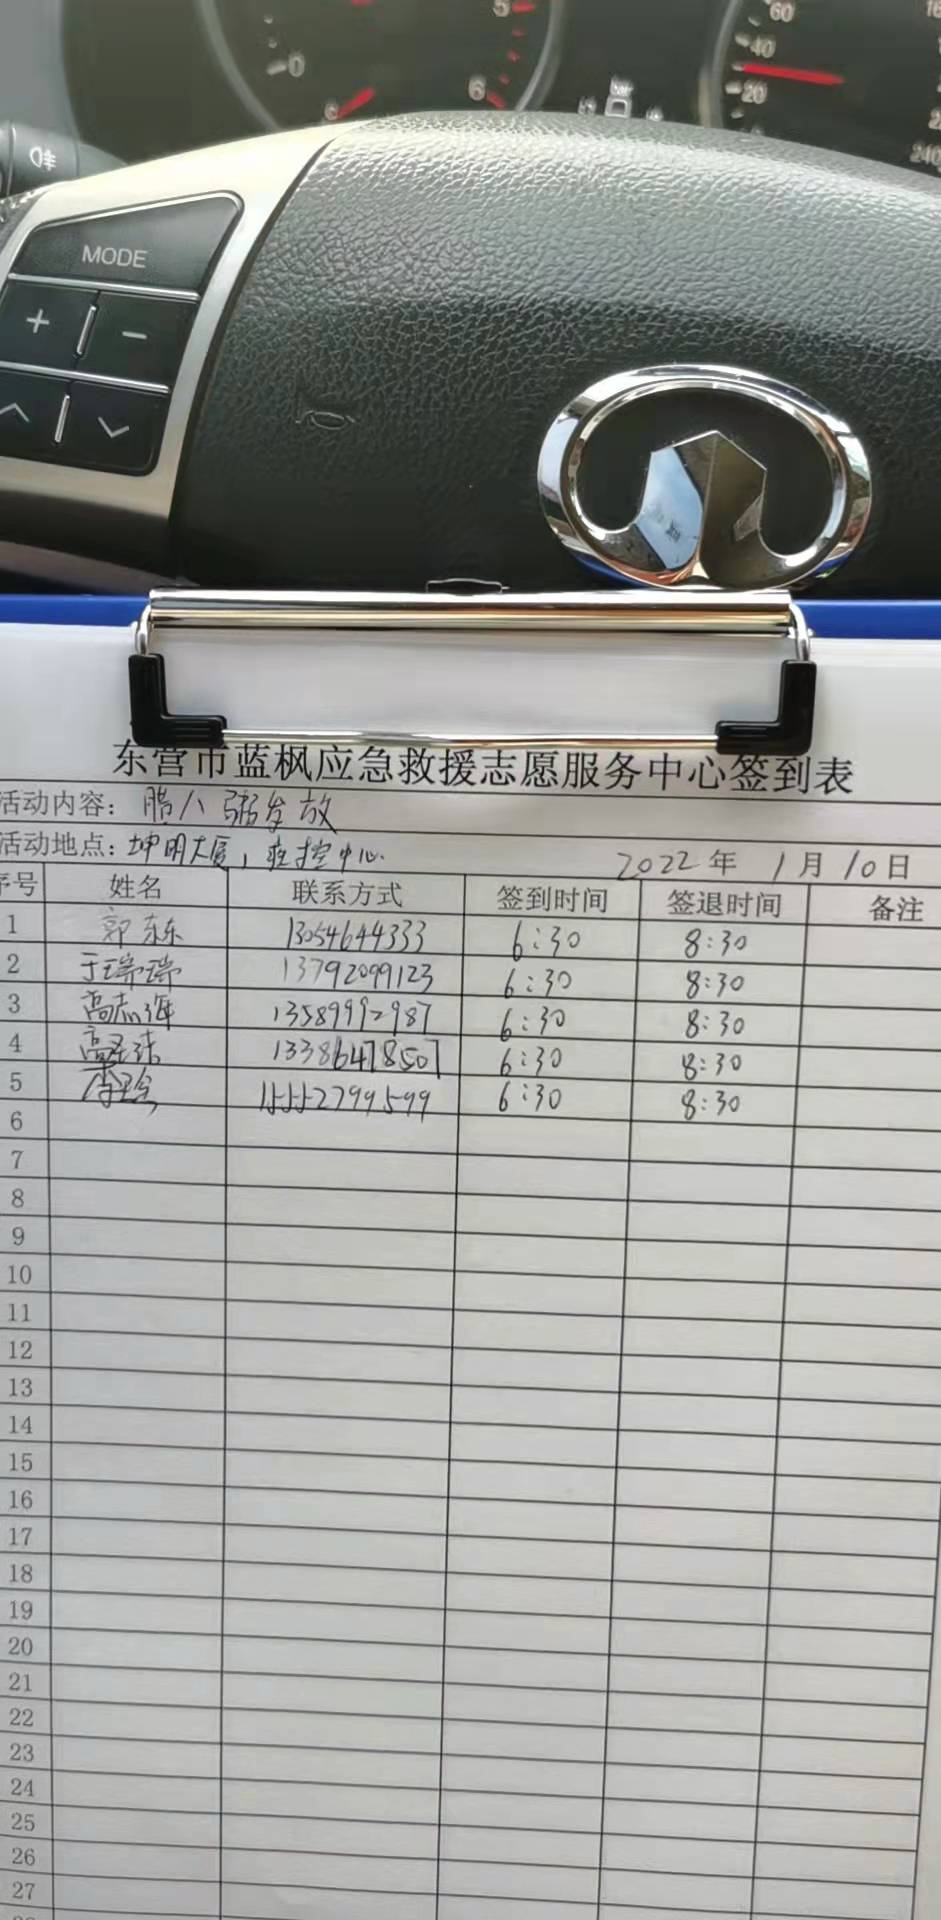 60
5
16
40
0
6
20
2
240
MODE
东营市蓝枫应急救援志愿服务中心签到表
活动内容：腊八粥发放
活动地点：坤明大厦，疾控中心 2022年 1月 10日
序号 姓名 联系方式 签到时间 签退时间 备注
1 郭东东 13054644333 6:30 8:30
2 于瑞瑞 13792099123 6:30 8:30
3 高志海 13589992987 6:30 8:30
4 13386478507 6:30 8:30
5 15552799599 6:30 8:30
6
7
8
9
10
11
12
13
14
15
16
17
18
19
20
21
22
23
24
25
26
27